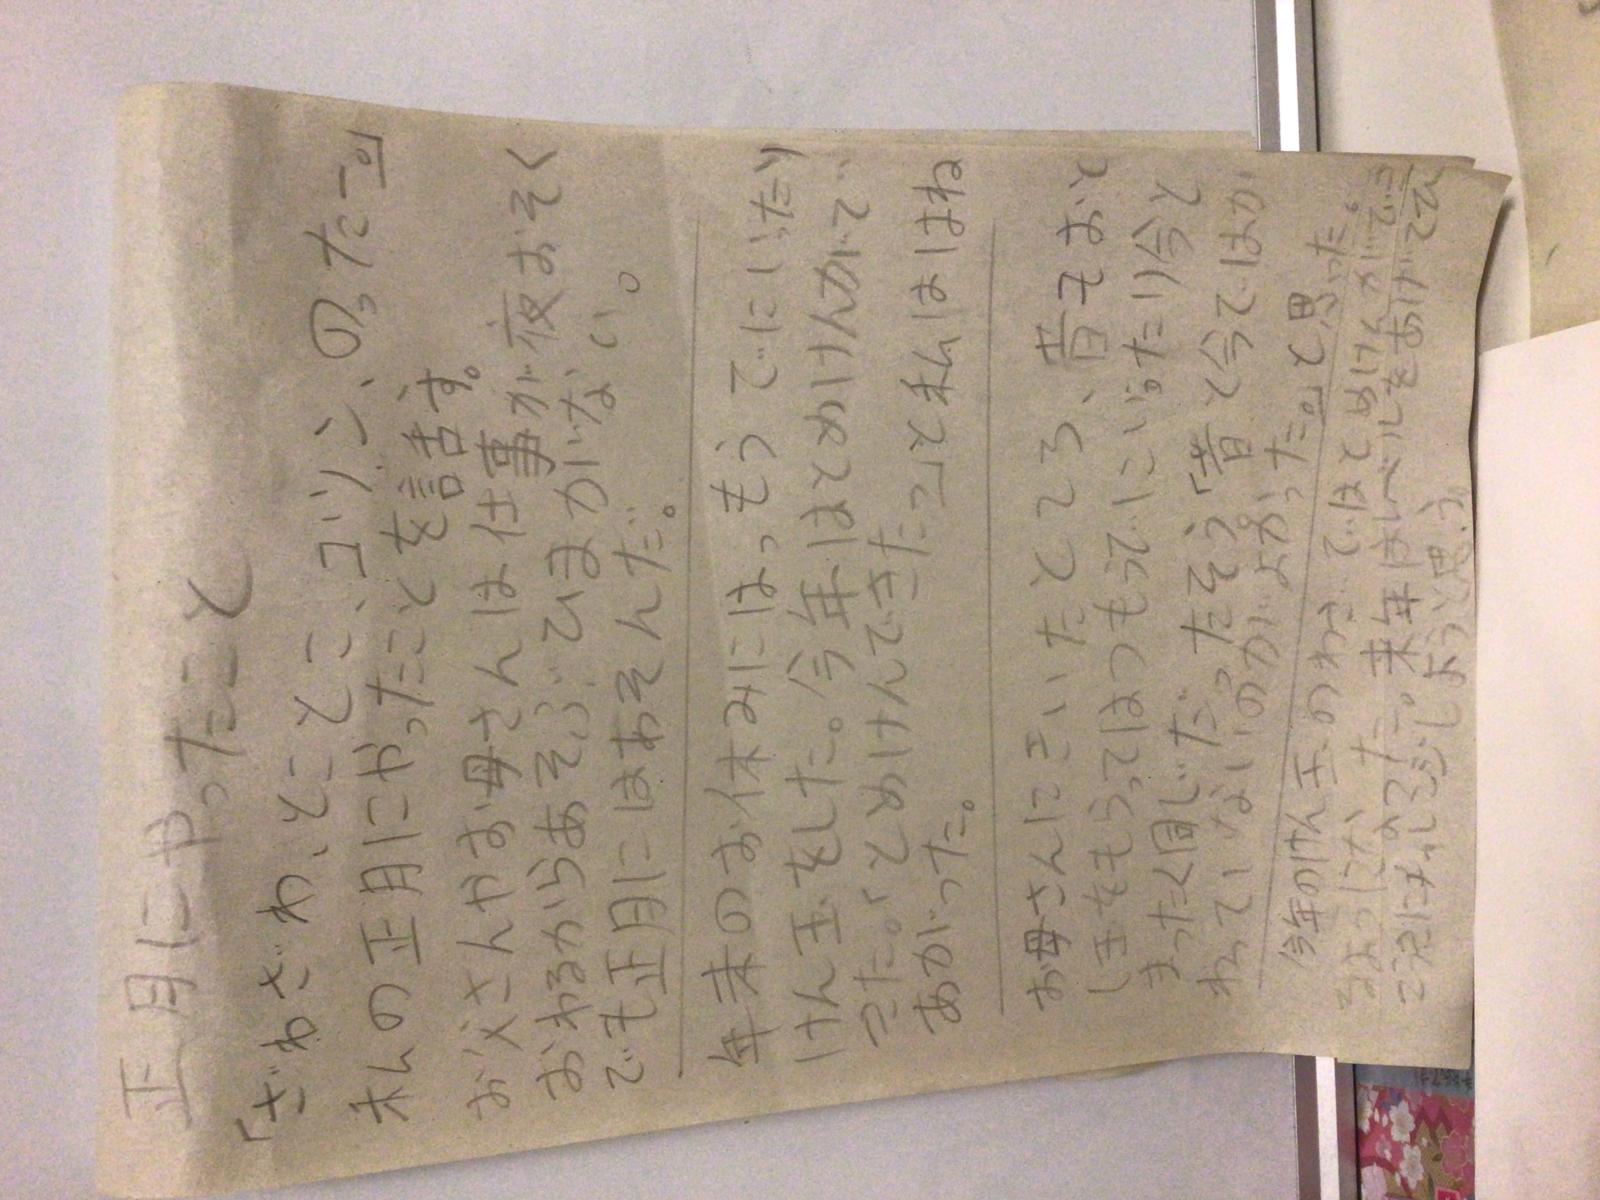 正月にやったこと
「ざわざわ、とことこ、コリン、のったこ」
私の正月にやったことを話す。
お父さんやお母さんは仕事が夜おそく
おわるからあそぶひまがない。
でも正月にはあそんだ。
年末のお休みにははつもうでにいったり
けん玉をした。今年はとめけんがで
きた。「とめけんできたっ」と私ははね
あがった。
お母さんにきいたところ、昔もおと
し玉をもらってはつもうでにいったり今と
まったく同じだったそう「昔と今ではか
わっていないのがよかった」と思った。
今年のけん玉のわざではとめけんができ
るようになった。来年はレベルをあげてひ
こうきにちょうせんしようと思う。